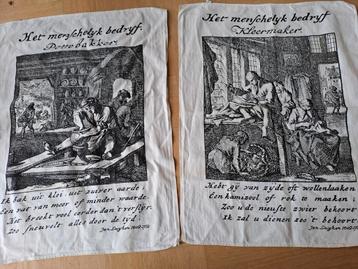 Het menschelyk bedryf.
Pottebakker.
Ik bak uit klei, uit zuivre aarde;
Een vat van meer of minder waarde.
Het breekt veel eerder dan 't verslyt.
Zoo sneuvelt alles door de tyd.
Jan Luyken
Het menschelyk bedryf
Kleermaker.
Hebt gy van zyde oft wollenlaaken
Een kamizool of rok te maaken;
Zoo u de nieuste zwier bekoort
Ik zal u dienen zoo 't behoort
Jan Luyken